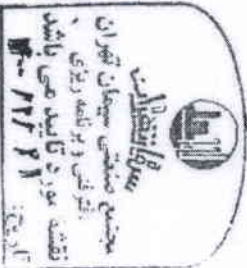 سیمان تهران
مجتمع صنعتی سیمان تهران
دفتر فنی و برنامه ریزی
نقشه مورد تایید می باشد
تاریخ: